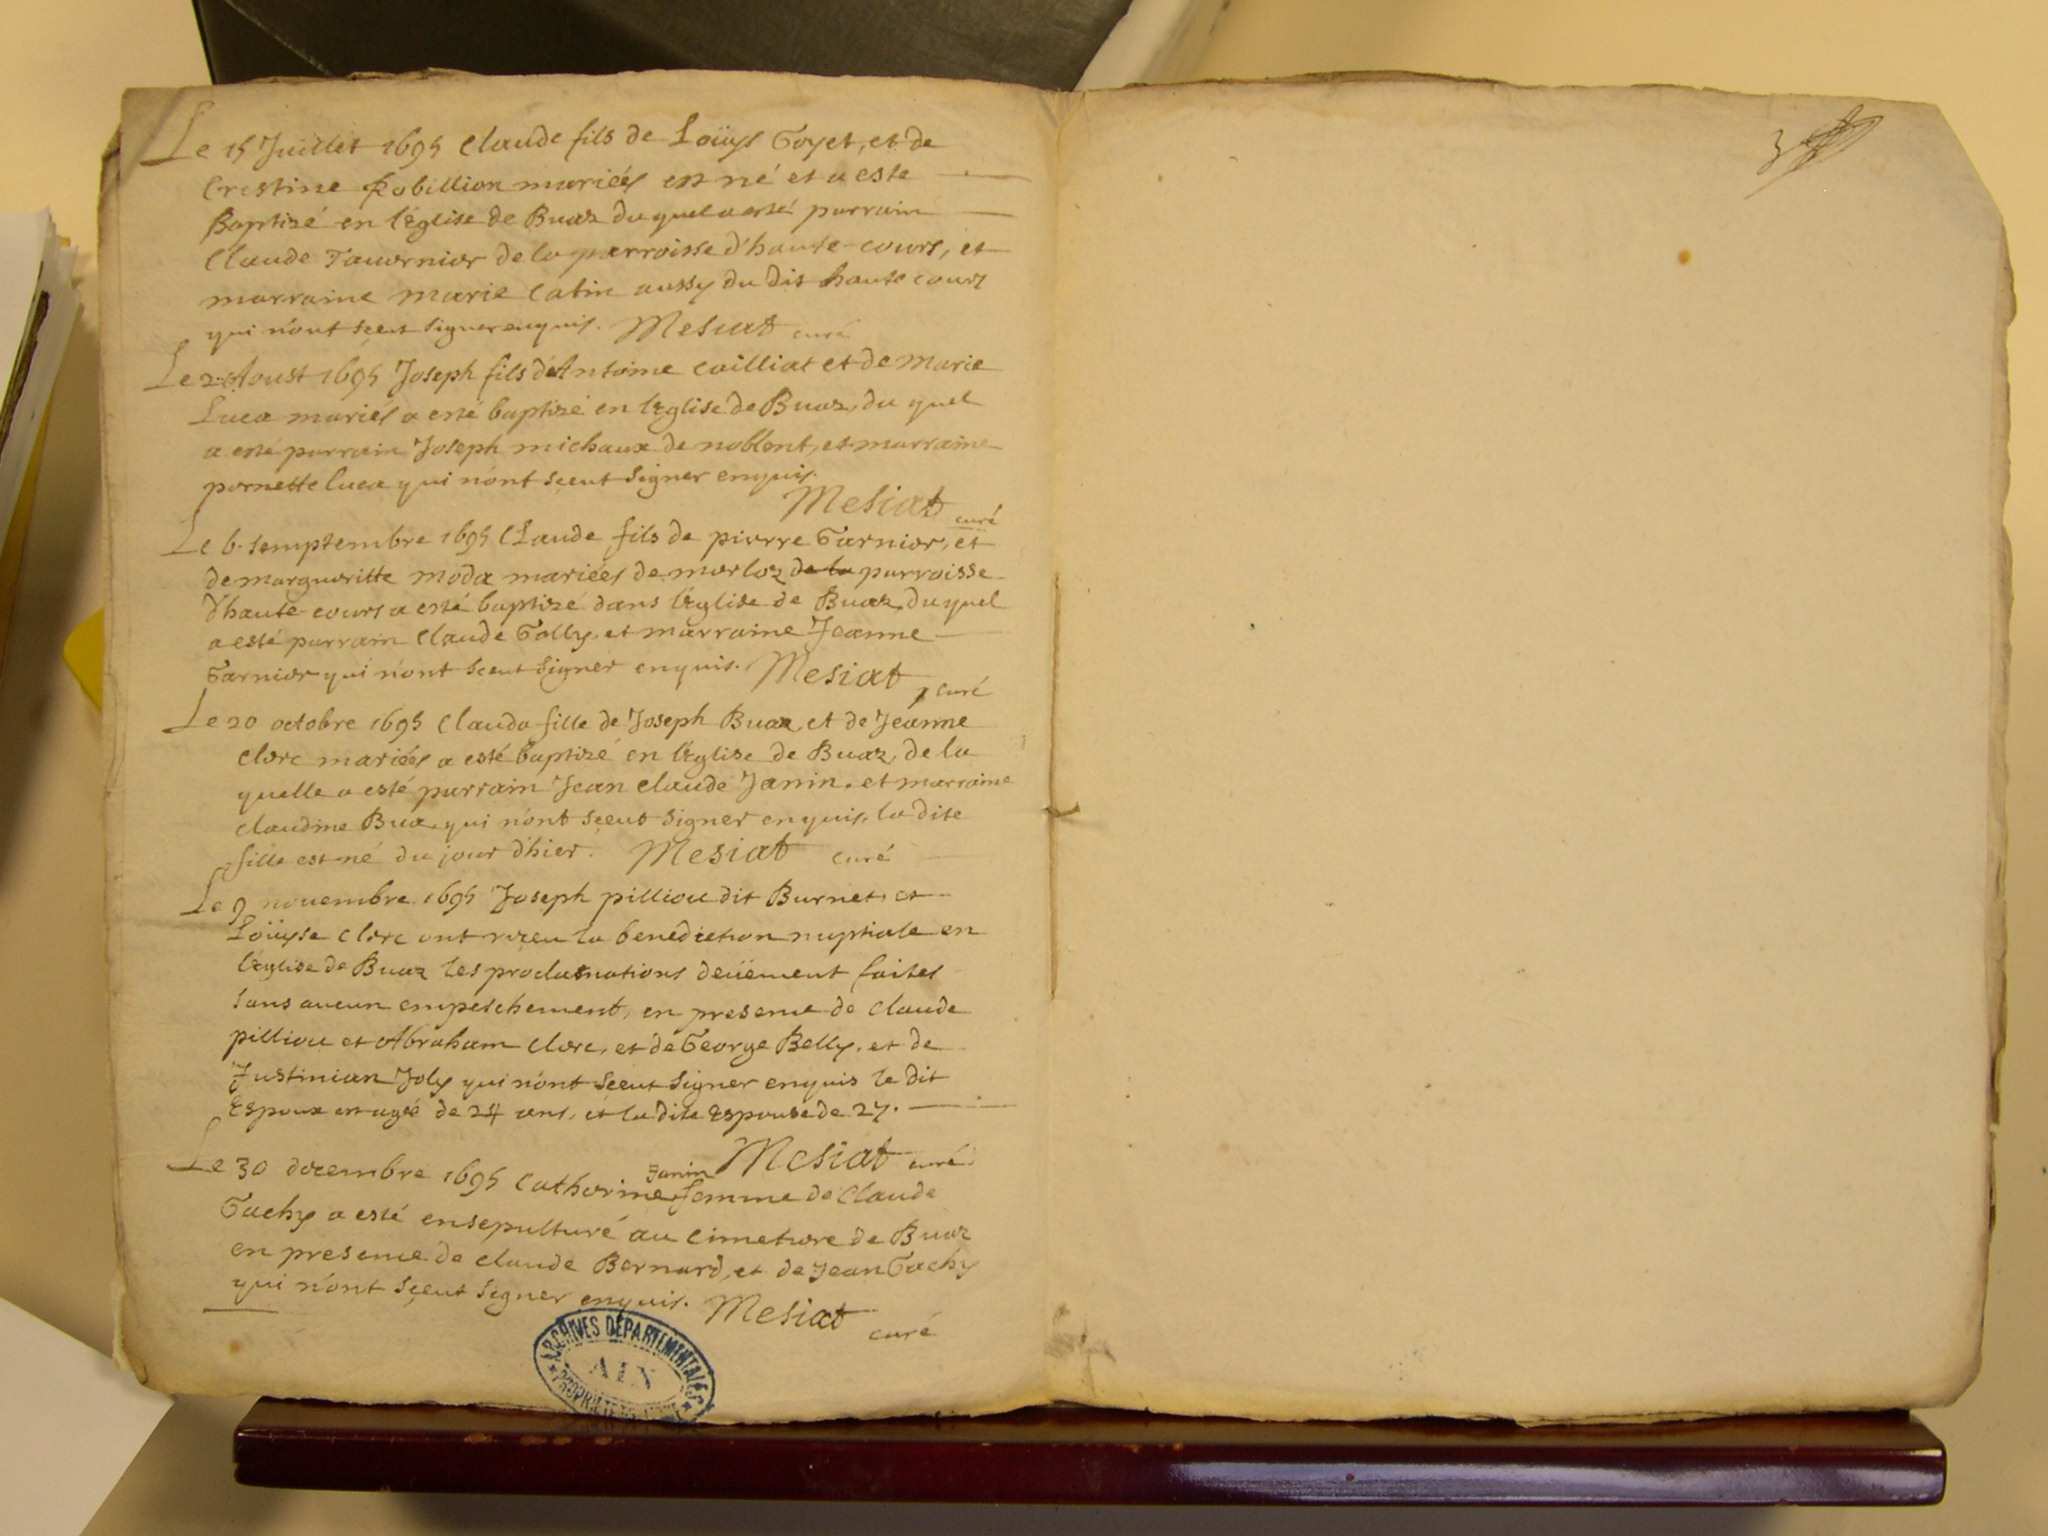 Le 15 Juillet 1695 Claude fils de Loüys Goyet, et de
Crestine Robillion mariées est né et a esté
Baptisé en l'Eglise de Buaz du quel a esté parrain
Claude Tavernier de la parroisse d'haute-cours, et
marraine marie Catin aussy du dit haute cours
qui n'ont sçeut signer enquis. Mesiat curé
Le 2 Aoust 1695 Joseph fils d'Antoine Cailliat et de Marie
Luca mariés a esté baptizé en l'Eglise de Buaz, du quel
a esté parrain Joseph michaux de noblent, et marraine
pernette luca qui n'ont sçeut signer enquis.
Mesiat curé
Le 6. semptembre 1695 Claude fils de pierre Garnier, et
de margueritte moda mariées de merloz de la parroisse
d'haute-cours a esté baptizé dans l'Eglise de Buaz, du quel
a esté parrain Claude Golly, et marraine Jeanne
Garnier qui n'ont sceut signer enquis. Mesiat, curé
Le 20 octobre 1695 Clauda fille de Joseph Buaz, et de Jeanne
Clerc mariées a esté baptizé en l'Eglise de Buaz, de la
quelle a esté parrain Jean Claude Janin, et marraine
Claudine Bua, qui n'ont sçeut signer enquis, la dite
fille est né du jour d'hier. Mesiat curé
Le 9 novembre 1695 Joseph pilliou dit Burnet, et
Loüyse Clerc ont reçeu la benediction nuptiale en
l'Eglise de Buaz les proclamations deüement faites
sans aucun empeschement, en presence de Claude
pilliou et Abraham Clerc, et de George Belly, et de
Justinian Joly qui n'ont sçeut signer enquis le dit
Espoux est agée de 24 ans, et la dite Espouse de 27.
Mesiat curé
Le 30 decembre 1695 Catherine Janin femme de Claude
Gachy a esté ensepulturé au cimetiere de Buaz
en presence de Claude Bernard, et de Jean Gachy
qui n'ont sçeut signer enquis. Mesiat
curé
ARCHIVES DÉPARTEMENTALES
AIN
3